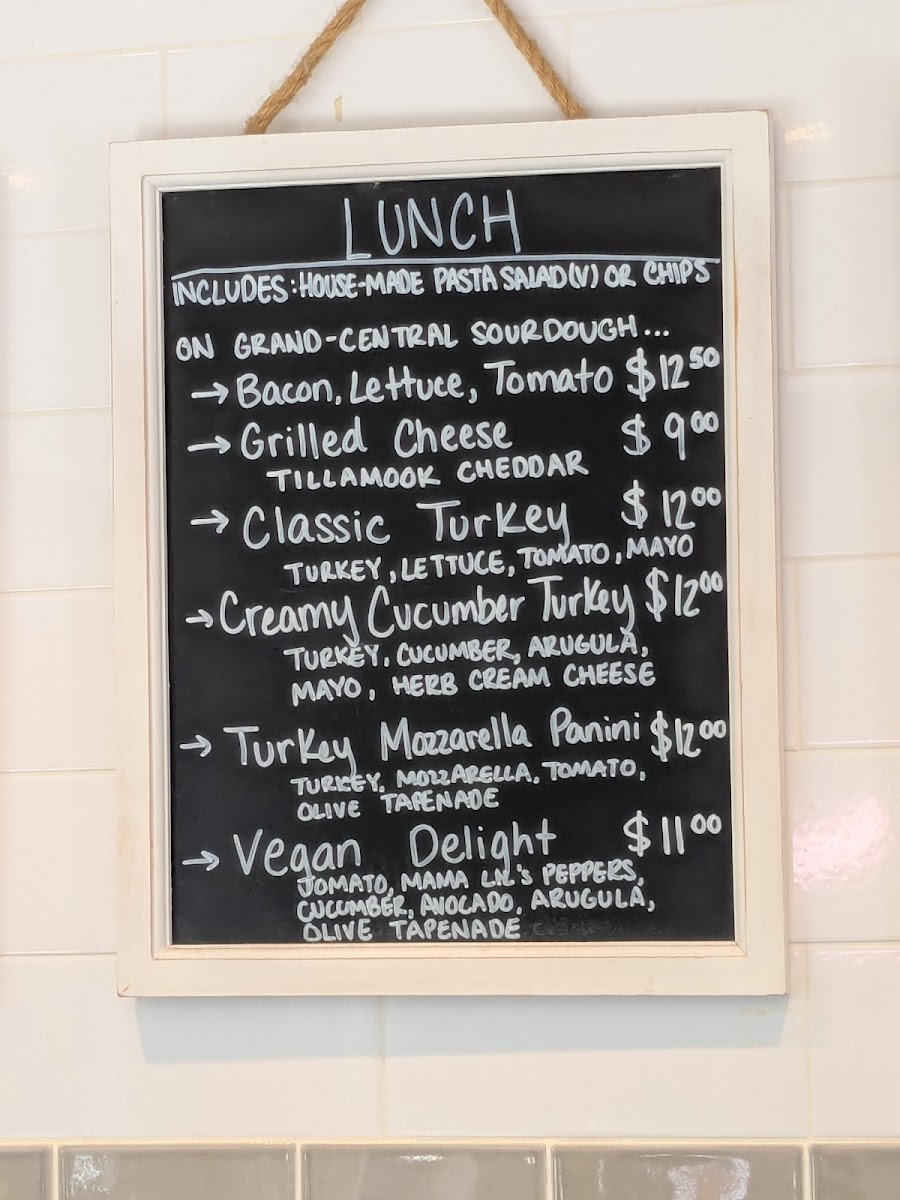 LUNCH
INCLUDES: HOUSE-MADE PASTA SALAD (V) OR CHIPS
ON GRAND-CENTRAL SOURDOUGH...
→ Bacon, Lettuce, Tomato $12.50
→ Grilled Cheese $9.00
TILLAMOOK CHEDDAR
→ Classic Turkey $12.00
TURKEY, LETTUCE, TOMATO, MAYO
→ Creamy Cucumber Turkey $12.00
TURKEY, CUCUMBER, ARUGULA,
MAYO, HERB CREAM CHEESE
→ Turkey Mozzarella Panini $12.00
TURKEY, MOZZARELLA, TOMATO,
OLIVE TAPENADE
→ Vegan Delight $11.00
TOMATO, MAMA LIL'S PEPPERS,
CUCUMBER, AVOCADO, ARUGULA,
OLIVE TAPENADE